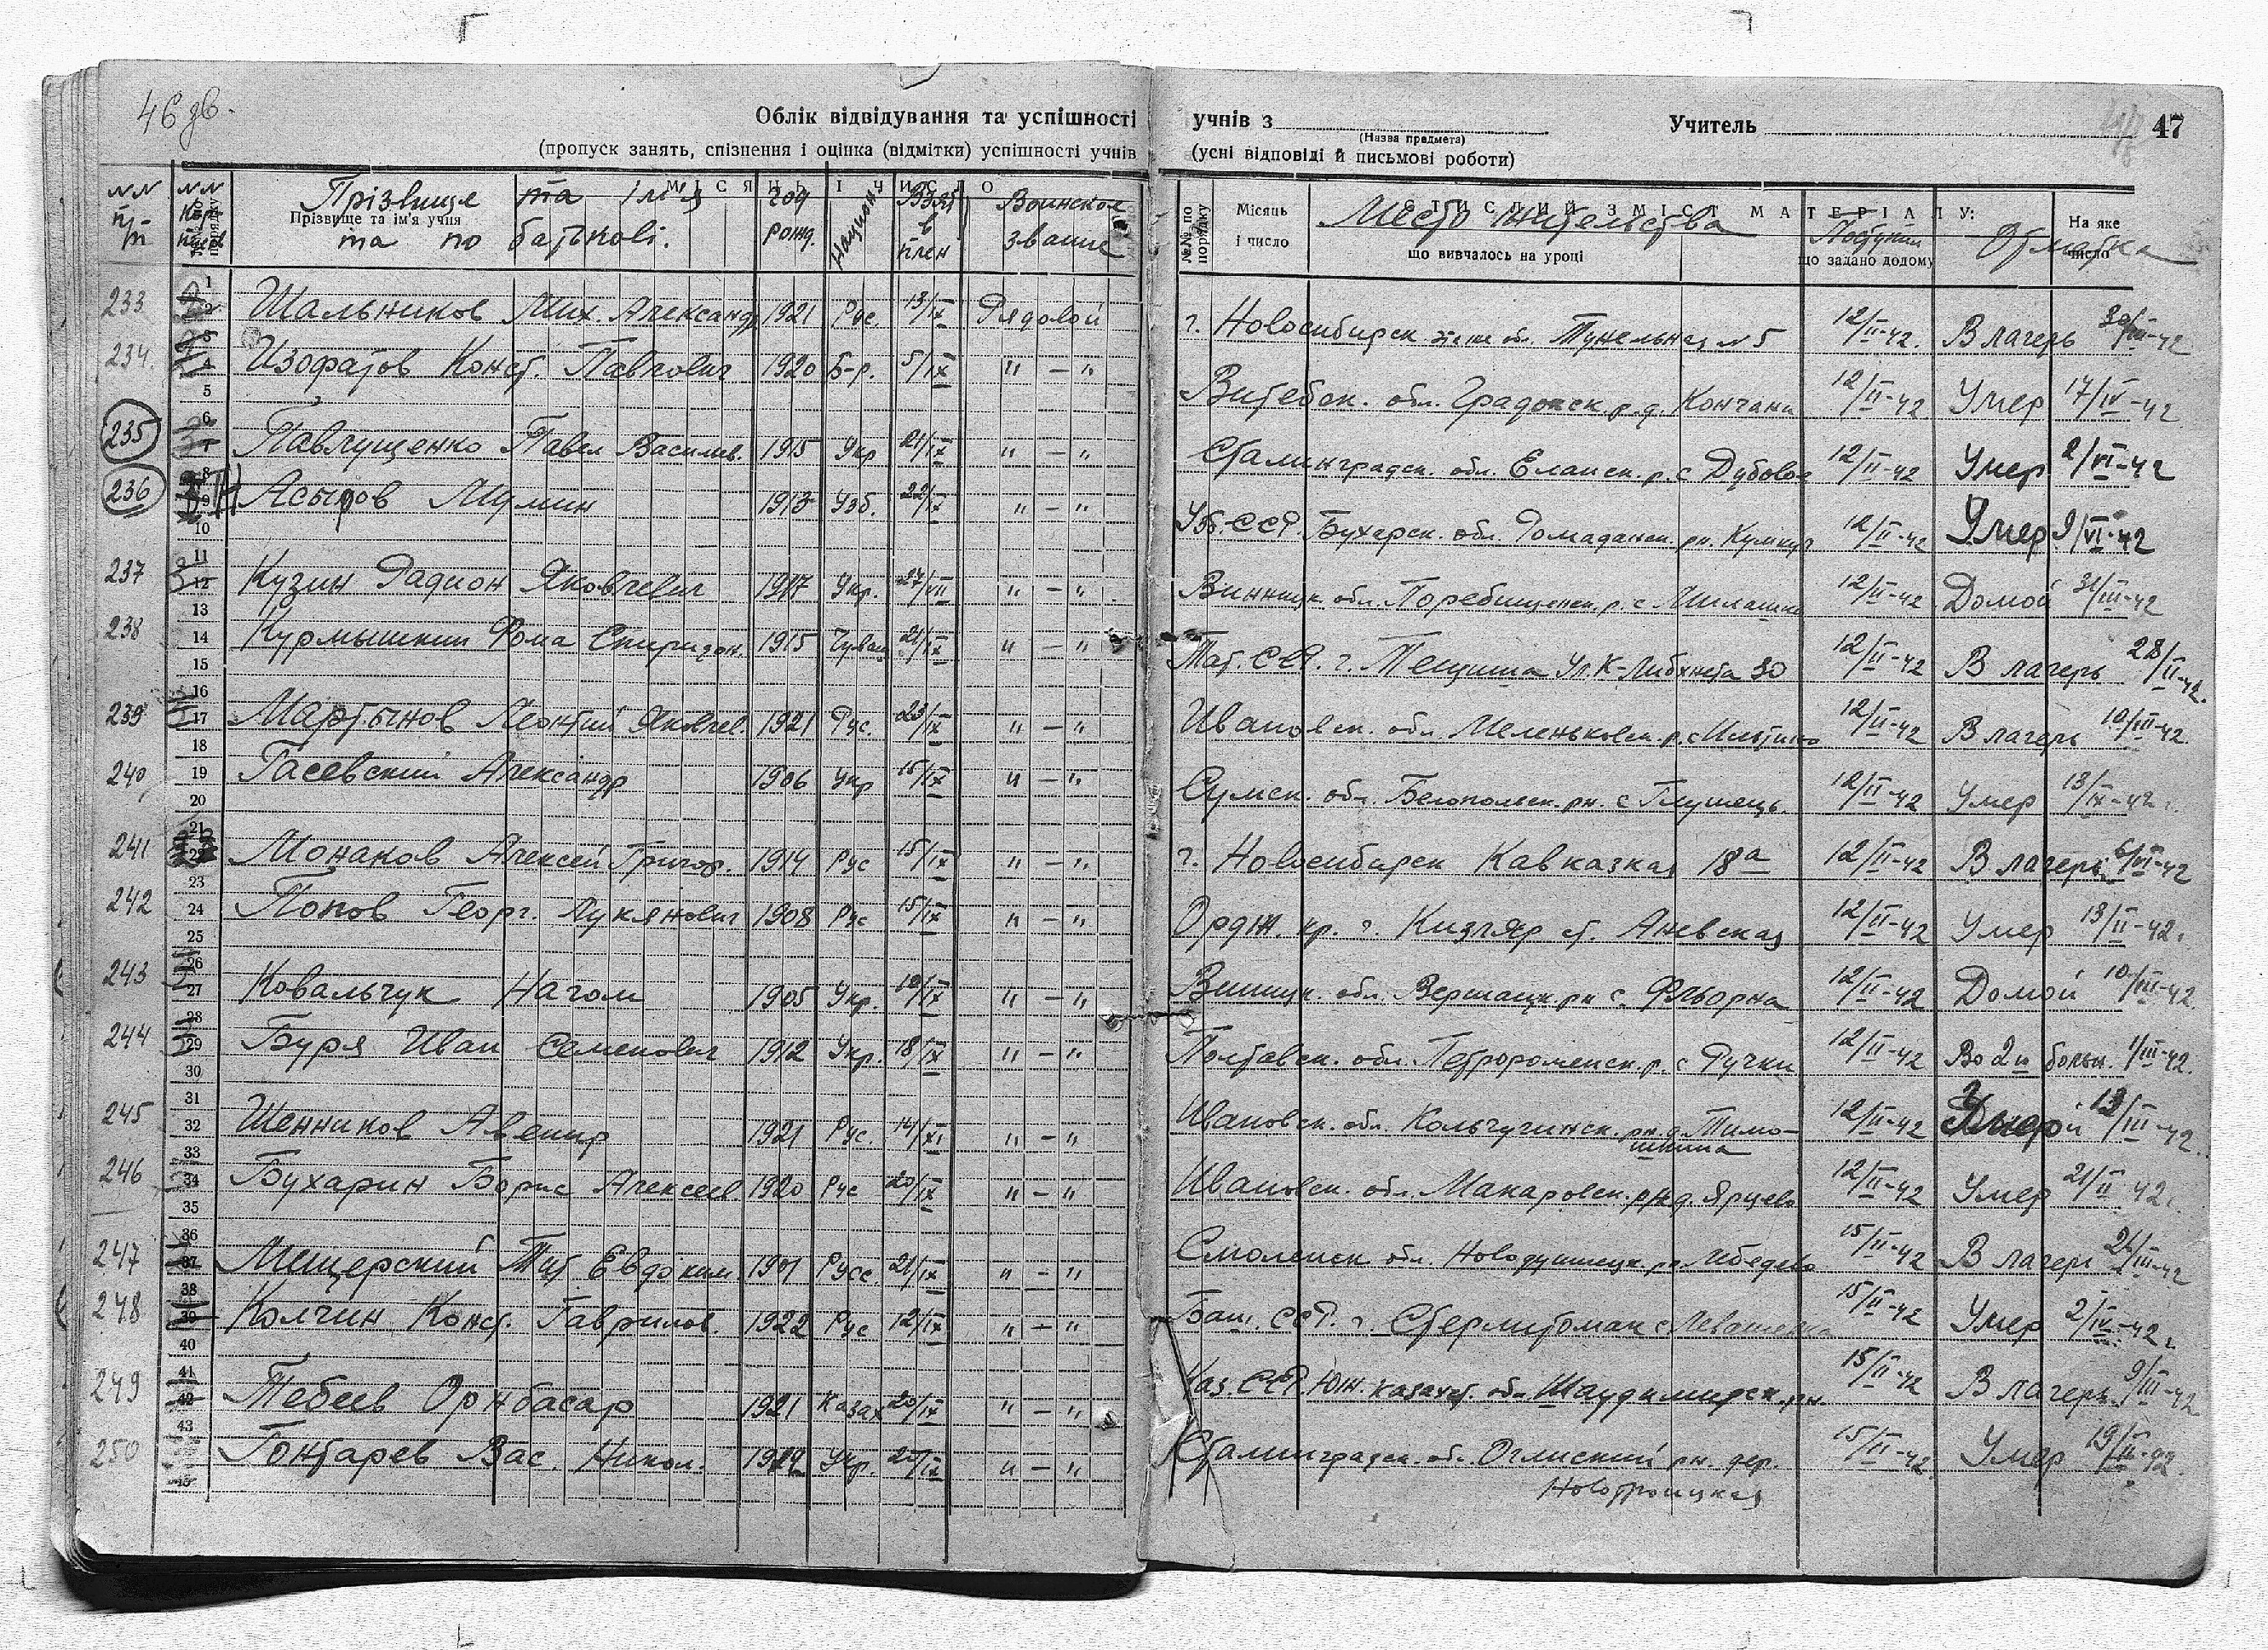 46 зв.
Облік відвідування та успішності учнів з Учитель 47
(Назва предмета)
(пропуск занять, спізнення і оцінка (відмітки) успішності учнів (усні відповіді й письмові роботи)
МІСЯЦЬ І ЧИСЛО
Прізвище та ім'я учня
Прізвище та ім'я та по батькові. год рожд. Национ Взят в плен Воинское звание
№№ по порядку Місяць і число СТИСЛИЙ ЗМІСТ МАТЕРІАЛУ: На яке число
що вивчалось на уроці що задано додому
Место жительства Поступил Отметка
233 Шальников Мих. Александр 1921 Рус. 13/IX Рядовой г. Новосибирск Тунельная №5 12/II-42. В лагерь 30/III-42
234. Изофатов Конст. Павлович 1920 Б-р. 5/IX " — " Витебск. обл. Градокск р. д. Кончани 12/II-42 Умер 17/IV-42
235 Павлущенко Павел Васильев. 1915 Укр 21/IX " — " Сталинградск. обл. Еланск. р. с Дубовое 12/II-42 Умер 2/VI-42
236 Асыров Мумин 1913 Узб. 22/IX " — " Узб. ССР. Бухарск. обл. Ромаданск. рн. 12/II-42 Умер 9/VI-42
237 Кузин Радион Яковлевич 1917 Укр. 27/VII " — " Винницк обл. Поребищенск. р. с 12/II-42 Домой 31/III-42
238 Курмышкин Фома Спиридон. 1915 Чуваш 21/IX " — " Тат. ССР. г. Ул. К-Либкнехта 30 12/II-42 В лагерь 28/II-42.
239 Мартынов Леонтий Яковлев. 1921 Рус. 23/IX " — " Ивановск. обл. Меленьковск. р. с 12/II-42 В лагерь 10/III-42
240 Гасевский Александр 1906 Укр 15/IX " — " Сумск. обл. Белопольск. рн. с Глушець. 12/II-42 Умер 13/IX-42 г.
241 Монаков Алексей Григор. 1914 Рус 15/IX " — " г. Новосибирск Кавказкая 18а 12/II-42 В лагерь 6/VI-42
242 Попов Георг. Лукянович 1908 Рус 15/IX " — " Ордж. кр. г. Кизляр ст. 12/II-42 Умер 13/II-42 г.
243 Ковальчук Нагом 1905 Укр. 10/IX " — " Винницк. обл. рн с. Фльорна 12/II-42 Домой 10/III-42.
244 Буря Иван Семенович 1912 Укр. 18/IX " — " Полтавск. обл. Петророменск. р. с Ручки 12/II-42 Во 2ю больн. 1/III-42.
245 Шенников Авенир 1921 Рус. 14/XI " — " Ивановск. обл. Кольчугинск. рн. д. Тимо- 12/II-42 Умер 13/III-42.
шкина
246 Бухарин Борис Алексеев 1920 Рус 20/IX " — " Ивановск. обл. Макаровск. рн д. Ярцево 12/II-42 Умер 21/II 42 г.
247 Мещерский Тит Евдоким. 1901 Русс. 21/IX " — " Смоленск обл. рн. 15/II-42 В лагерь 21/III-42
248 Колчин Конст. Гаврилов. 1922 Рус 12/IX " — " Баш. ССР. г. Стерлитомак с 15/II-42 Умер 2/IV-42 г.
249 Тебеев Орнбасар 1921 Казах 20/IX " — " Каз. ССР. Юж. казахст. обл. рн. 15/II-42 В лагерь 9/III-42
250 Гонтарев Вас. Никол. Укр. " — " Сталинградск. обл. рн. дер. 15/II-42 Умер 19/II-42.
Новотроицкая